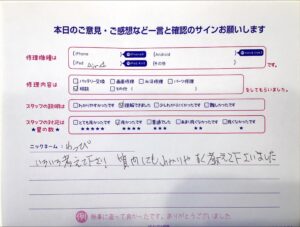 本日のご意見・ご感想など一言と確認のサインお願いします
修理機種は
iPhone
Android
iPad
その他
です。
修理内容は
バッテリー交換 画面修理 水没修理 パーツ修理
相談 その他
をしてもらいました。
スタッフの説明は わかりやすかった 理解できました 少しわかりにくかった 難しかった
スタッフの対応は とても良かった 良かった 普通でした あまり良くなかった 良くなかった
★星の数★ ★★★★★ ★★★★ ★★★ ★★ ★
ニックネーム：
いろいろ考えて下さり 質問にもわかりやすく教えて下さいました
無事に直って良かったです。ありがとうございました